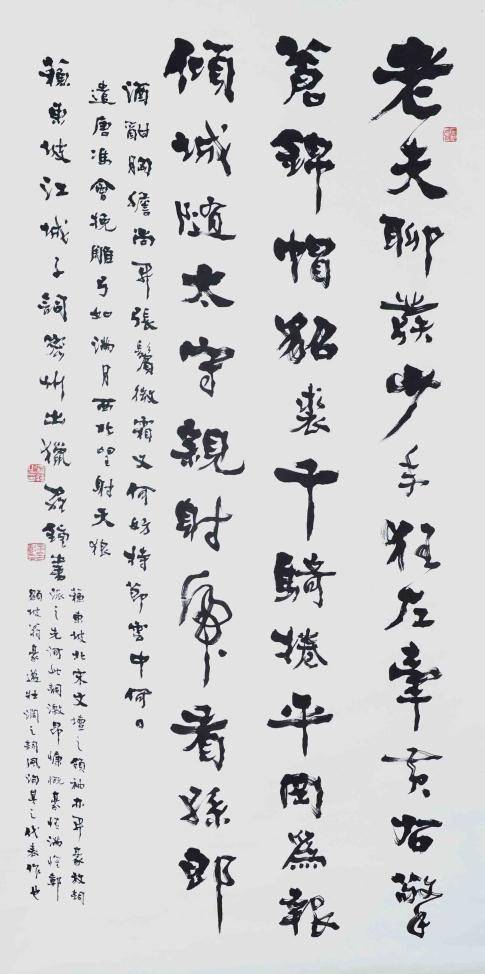 老夫聊發少年狂左牽黃右擎
蒼錦帽貂裘千騎捲平岡爲報
傾城隨太守親射虎看孫郎
酒酣胸膽尚開張鬢微霜又何妨持節雲中何日
遣唐馮會挽雕弓如滿月西北望射天狼
蘇東坡江城子詞密州出獵 鐘書
蘇東坡北宋文壇之領袖亦開豪放詞
派之先河此詞激昂慷慨豪情滿懷彰
顯坡翁豪邁壯濶之詞風洵其之代表作也